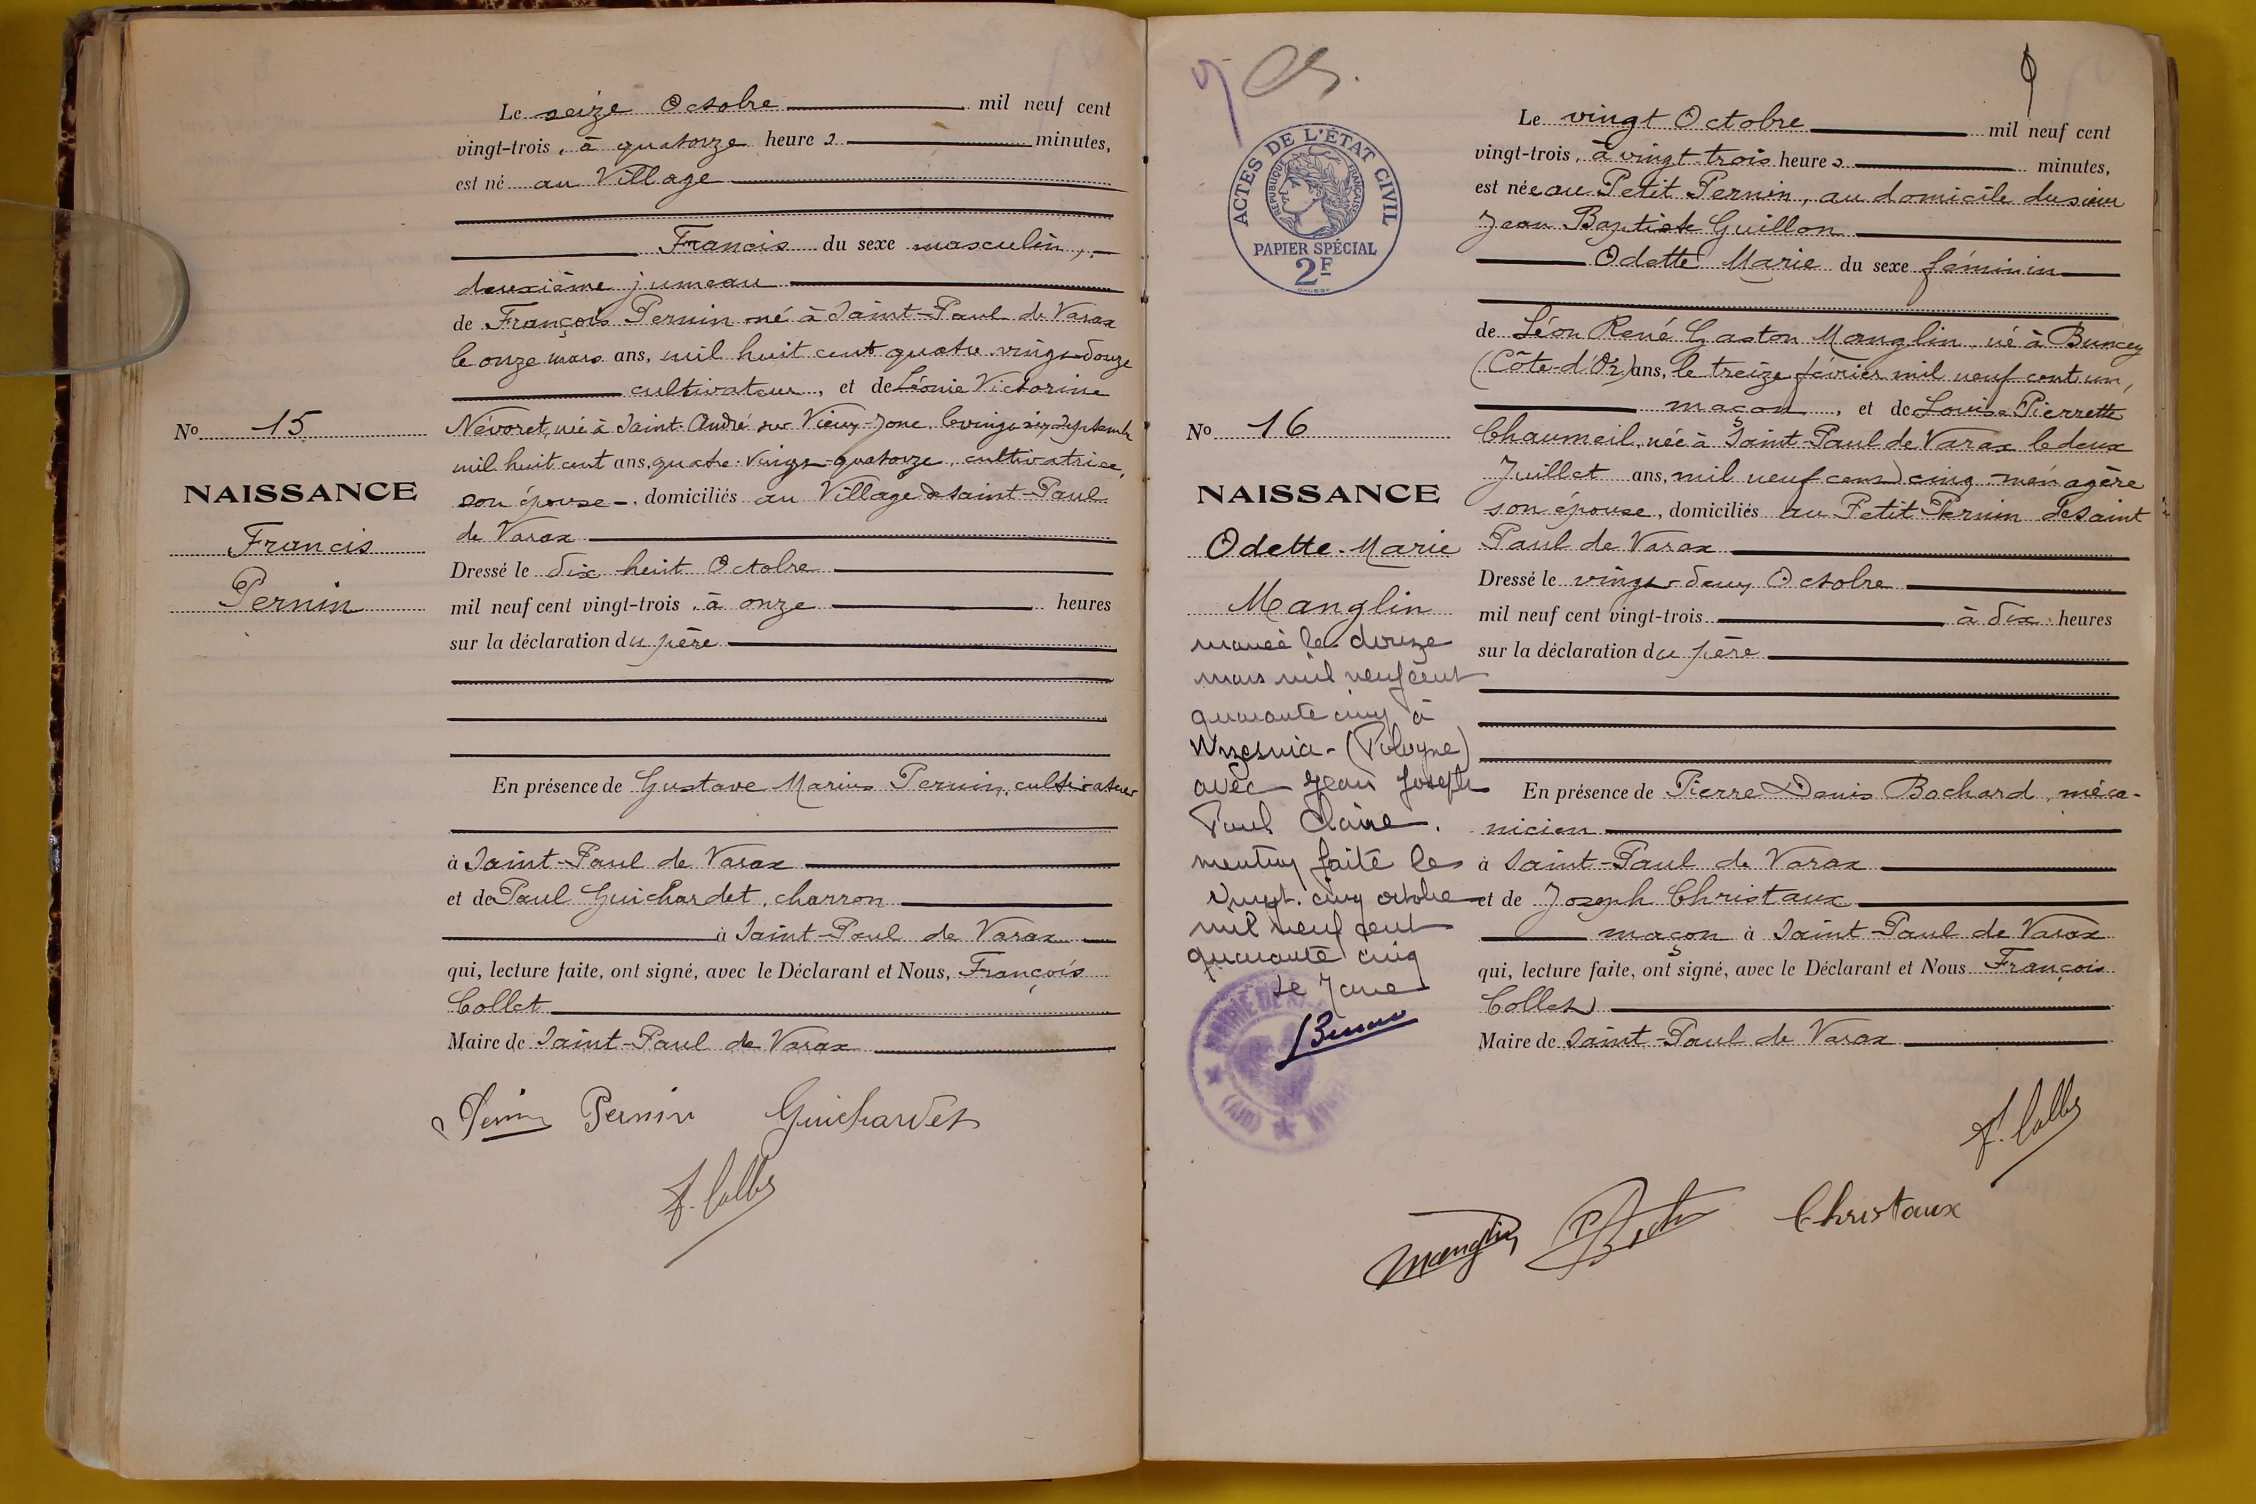 Le seize Octobre mil neuf cent
vingt-trois, à quatorze heures minutes,
est né au Village
Francis du sexe masculin,
deuxième jumeau
de François Pernin né à Saint-Paul de Varax
le onze mars ans, mil huit cent quatre-vingt-douze
cultivateur, et de Léonie Victorine
Névoret, née à Saint-André sur Vieux-Jonc, le vingt six Septembre
mil huit cent ans, quatre-vingt-quatorze, cultivatrice,
son épouse, domiciliés au Village de Saint-Paul
de Varax
Dressé le dix huit Octobre
mil neuf cent vingt-trois, à onze heures
sur la déclaration du père
En présence de Gustave Marius Pernin, cultivateur
à Saint-Paul de Varax
et de Paul Guichardet, charron
à Saint-Paul de Varax
qui, lecture faite, ont signé, avec le Déclarant et Nous, François
Collet
Maire de Saint-Paul de Varax
Pernin Pernin Guichardet
F. Collet
No 15
NAISSANCE
Francis
Pernin
ACTES DE L'ÉTAT CIVIL
RÉPUBLIQUE FRANÇAISE
PAPIER SPÉCIAL
2F
No 16
NAISSANCE
Odette-Marie
Manglin
mariée le douze
mars mil neuf cent
quarante cinq à
Wrzesnia - (Pologne)
avec Jean Joseph
Paul Claire.
mention faite le
vingt-cinq octobre
mil neuf cent
quarante cinq
Le Maire
MAIRIE DE
(AIN)
Le vingt Octobre mil neuf cent
vingt-trois, à vingt-trois heures minutes,
est née au Petit Pernin, au domicile du sieur
Jean Baptiste Guillon
Odette Marie du sexe féminin
de Léon René Gaston Manglin, né à Buncey
(Côte-d'Or) ans, le treize février mil neuf cent un,
maçon, et de Louise Pierrette
Chaumeil, née à Saint-Paul de Varax le deux
Juillet ans, mil neuf cent cinq ménagère
son épouse, domiciliés au Petit Pernin de Saint
Paul de Varax
Dressé le vingt-deux Octobre
mil neuf cent vingt-trois à dix heures
sur la déclaration du père
En présence de Pierre Denis Bochard, méca-
nicien
à Saint-Paul de Varax
et de Joseph Christaux
maçon à Saint-Paul de Varax
qui, lecture faite, ont signé, avec le Déclarant et Nous François
Collet
Maire de Saint-Paul de Varax
F. Collet
Manglin Christaux